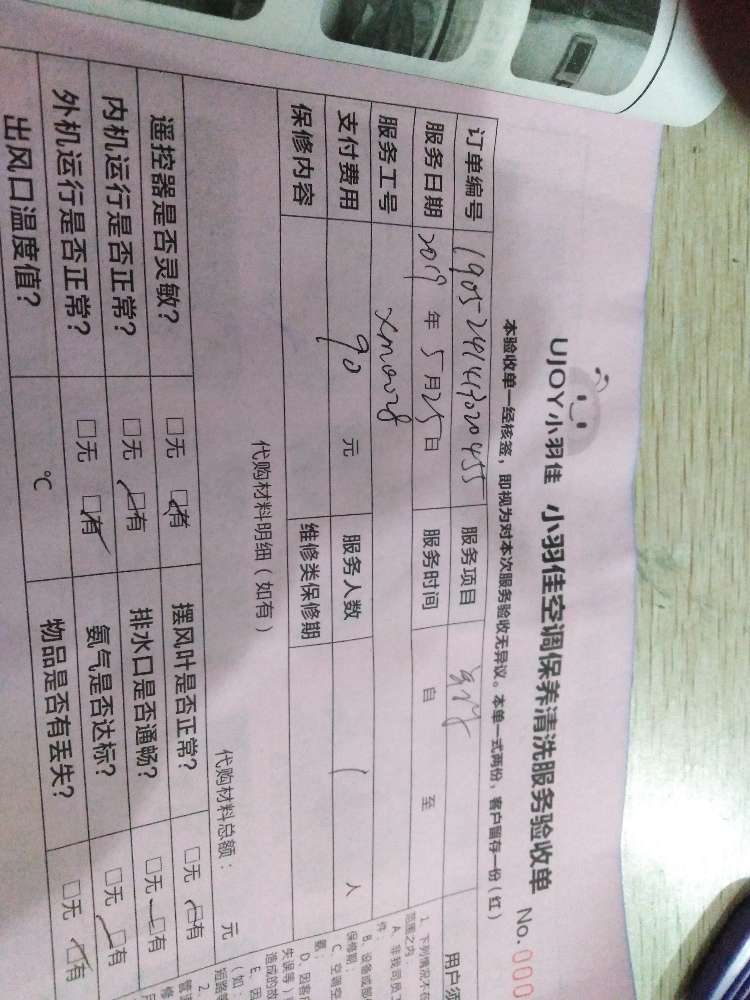 UJOY小羽佳 小羽佳空调保养清洗服务验收单 No.000
本验收单一经核签，即视为对本次服务验收无异议。本单一式两份，客户留存一份（红）
订单编号 服务项目
服务日期 2019 年 5 月 25 日 服务时间 自 至
服务工号
支付费用 90 元 服务人数 1 人
保修内容 维修类保修期
代购材料明细（如有） 代购材料总额： 元
遥控器是否灵敏？ □无 □有 摆风叶是否正常？ □无 □有
内机运行是否正常？ □无 □有 排水口是否通畅？ □无 □有
外机运行是否正常？ □无 □有 氨气是否达标？ □无 □有
出风口温度值？ ℃ 物品是否有丢失？ □无 □有
用户须
1. 下列情况不在
范围之内：
A. 非我司员工
件；
B. 设备或部
保修期；
C. 空调空
氨；
D. 因客户
失误等）
造成的故
E. 因
如：
短路等
2.
管
修